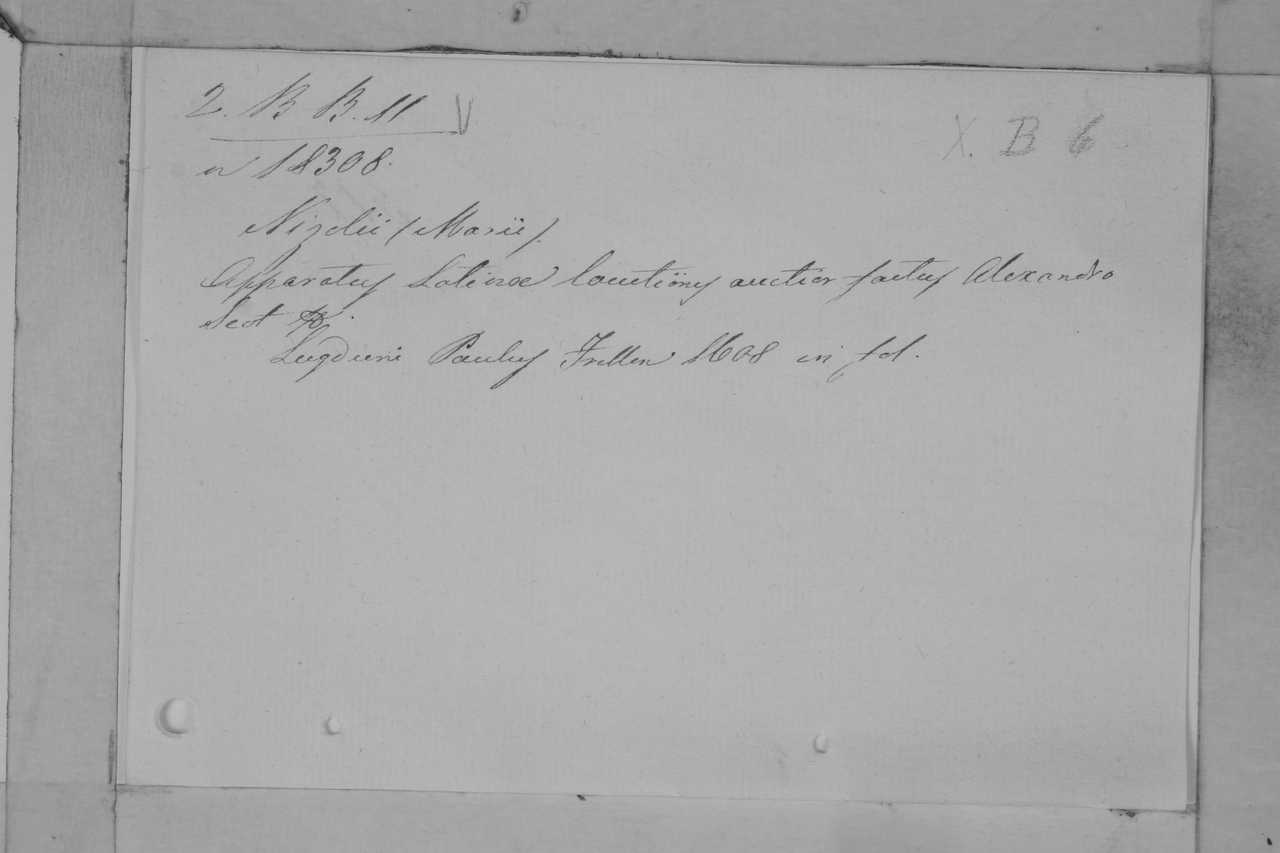 2. B B. 11 V
X. B 6
n 18308.
Nizolii (Marii).
Apparatus Latinae locutionis auctior factus Alexandro
Scot
Lugduni Paulus Frellon 1608 in fol.